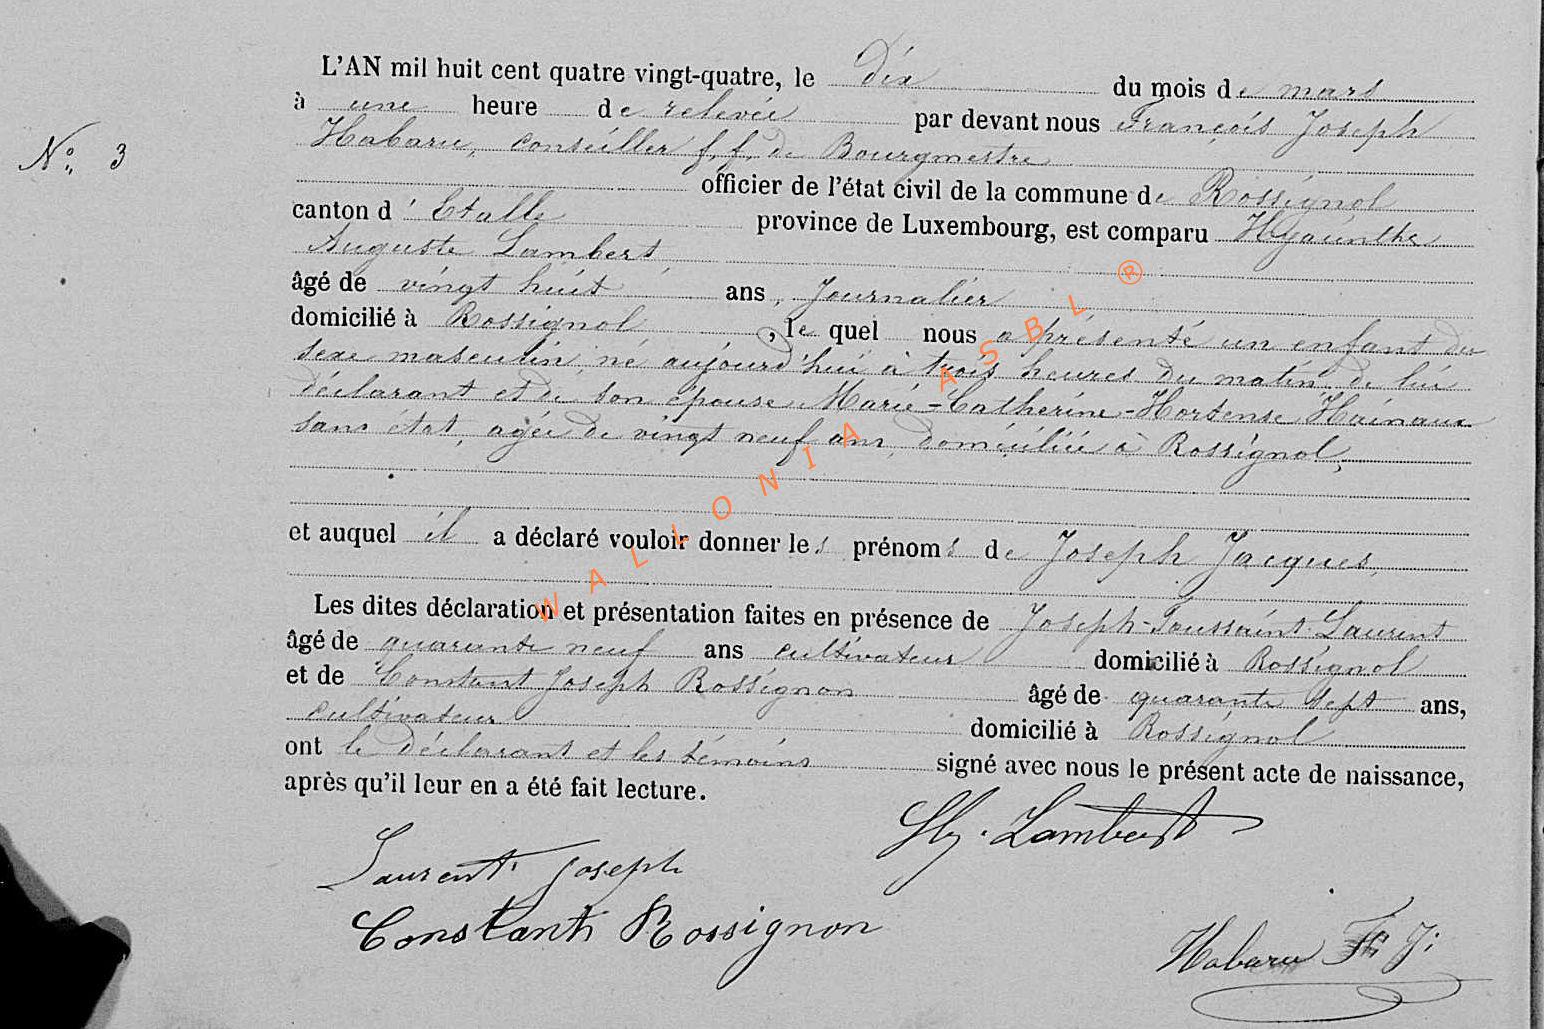 L'AN mil huit cent quatre vingt-quatre, le dix du mois de mars
à une heure de relevée par devant nous François Joseph
Habaru, conseiller f. f. de Bourgmestre
officier de l'état civil de la commune de Rossignol
N° 3
canton d'Etalle province de Luxembourg, est comparu Hyacinthe
Auguste Lambert,
âgé de vingt huit ans, Journalier
domicilié à Rossignol, le quel nous a présenté un enfant du
sexe masculin, né aujourd'hui à trois heures du matin, de lui
déclarant et de son épouse Marie-Catherine-Hortense Hainaux
sans état, agée de vingt neuf ans, domiciliée à Rossignol,
et auquel il a déclaré vouloir donner les prénoms de Joseph Jacques,
Les dites déclaration et présentation faites en présence de Joseph-Toussaint Laurent
âgé de quarante neuf ans cultivateur domicilié à Rossignol
et de Constant Joseph Rossignon âgé de quarante sept ans,
cultivateur domicilié à Rossignol
ont le déclarant et les témoins signé avec nous le présent acte de naissance,
après qu'il leur en a été fait lecture.
Hy. Lambert
Laurent Joseph
Constant Rossignon
Habaru F. J.
WALLONIA ASBL ®